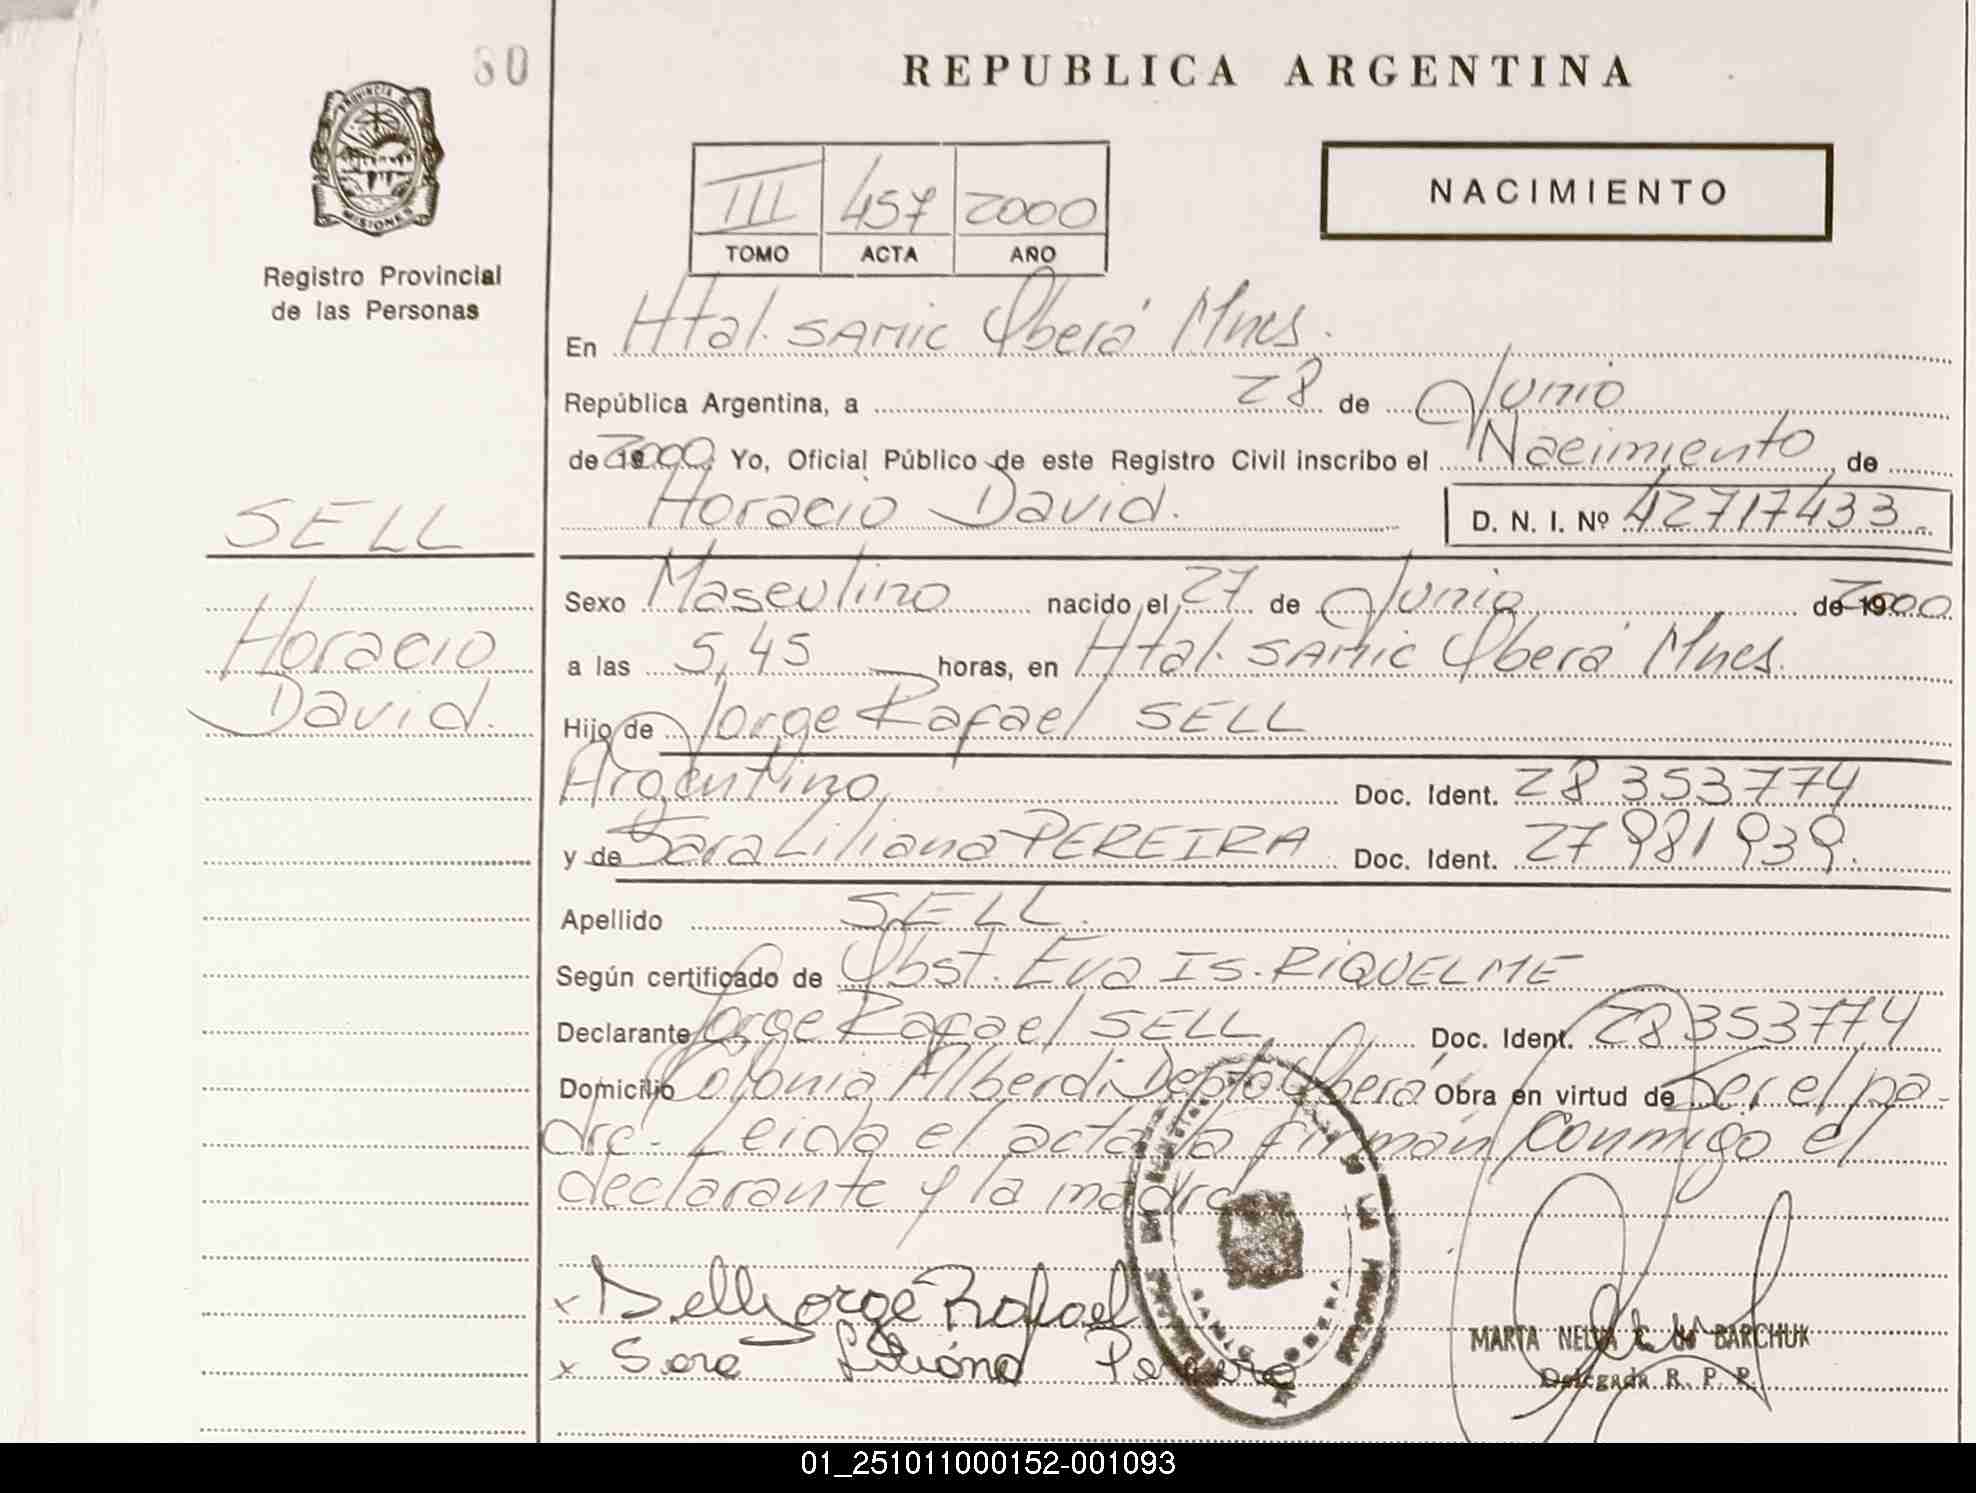 80
REPUBLICA ARGENTINA
PROVINCIA DE
MISIONES
Registro Provincial
de las Personas
III 457 2000
TOMO ACTA AÑO
NACIMIENTO
En Htal. SAMIC Oberá Mnes.
República Argentina, a 28 de Junio
de 2000 Yo, Oficial Público de este Registro Civil inscribo el Nacimiento de
Horacio David.
D. N. I. Nº 42717433
SELL
Horacio
David.
Sexo Masculino nacido el 27 de Junio de 19 2000
a las 5,45 horas, en Htal. SAMIC Oberá Mnes.
Hijo de Jorge Rafael SELL
Argentino Doc. Ident. 28 353774
y de Sara Liliana PEREIRA Doc. Ident. 27 981 939.
Apellido SELL.
Según certificado de Obst. Eva Is. RIQUELME
Declarante Jorge Rafael SELL Doc. Ident. 28353774
Domicilio Colonia Alberdi Depto Oberá Obra en virtud de Ser el pa-
dre- Leida el acta la firman conmigo el
declarante y la madre
x Sell Jorge Rafael
x Sara Liliana Pereira
SAMIC OBERA
MARTA NELVA C. BARCHUK
Delegada R. P. P.
01_251011000152-001093